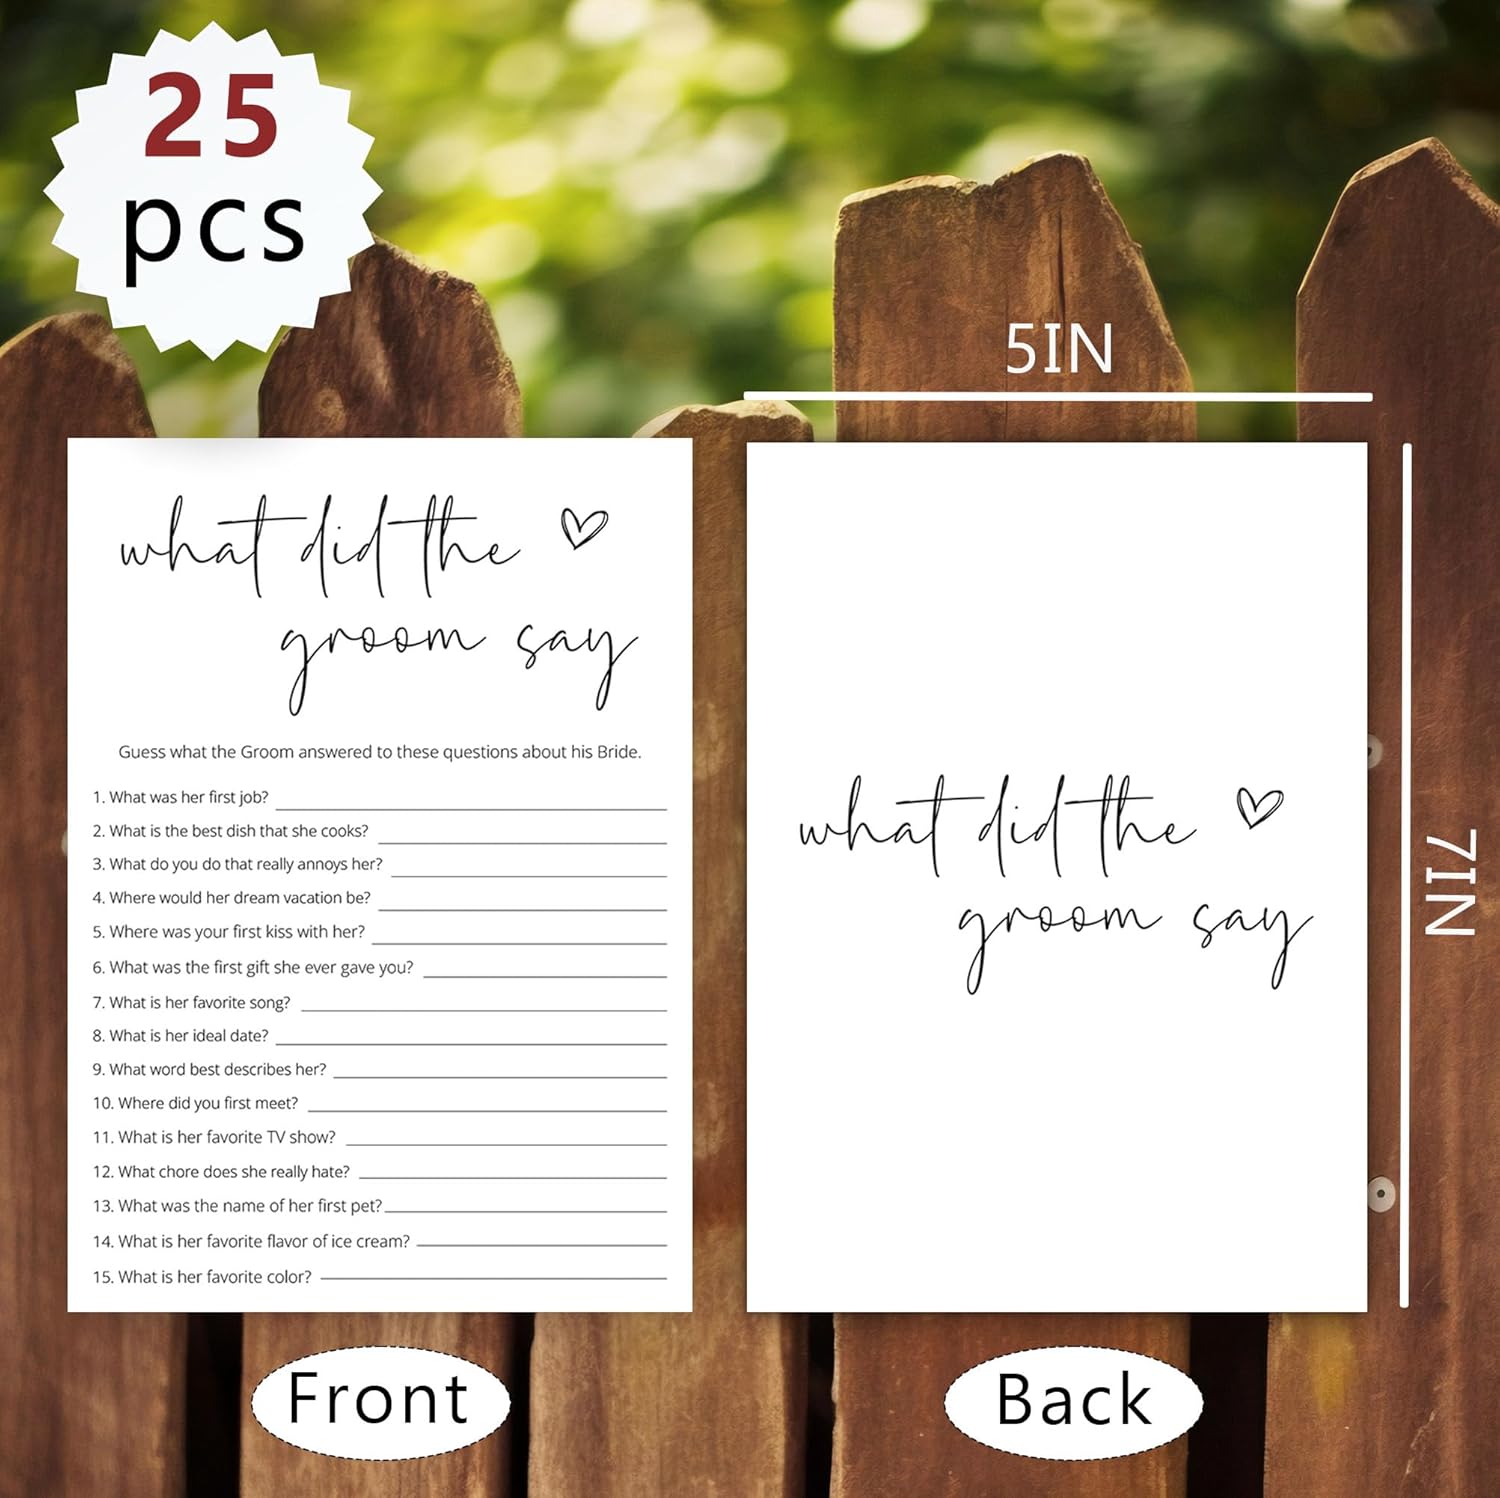 25
pcs
5IN
7IN
what did the
groom say
Guess what the Groom answered to these questions about his Bride.
1. What was her first job?
2. What is the best dish that she cooks?
3. What do you do that really annoys her?
4. Where would her dream vacation be?
5. Where was your first kiss with her?
6. What was the first gift she ever gave you?
7. What is her favorite song?
8. What is her ideal date?
9. What word best describes her?
10. Where did you first meet?
11. What is her favorite TV show?
12. What chore does she really hate?
13. What was the name of her first pet?
14. What is her favorite flavor of ice cream?
15. What is her favorite color?
what did the
groom say
Front
Back